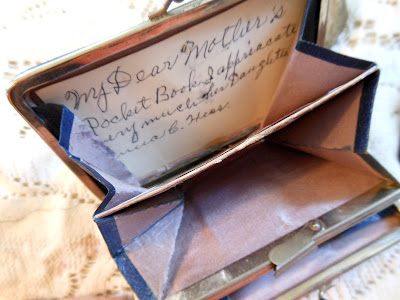 My Dear Mother's
Pocket Book I appreciate
very much Her Daughter
C. Hess.